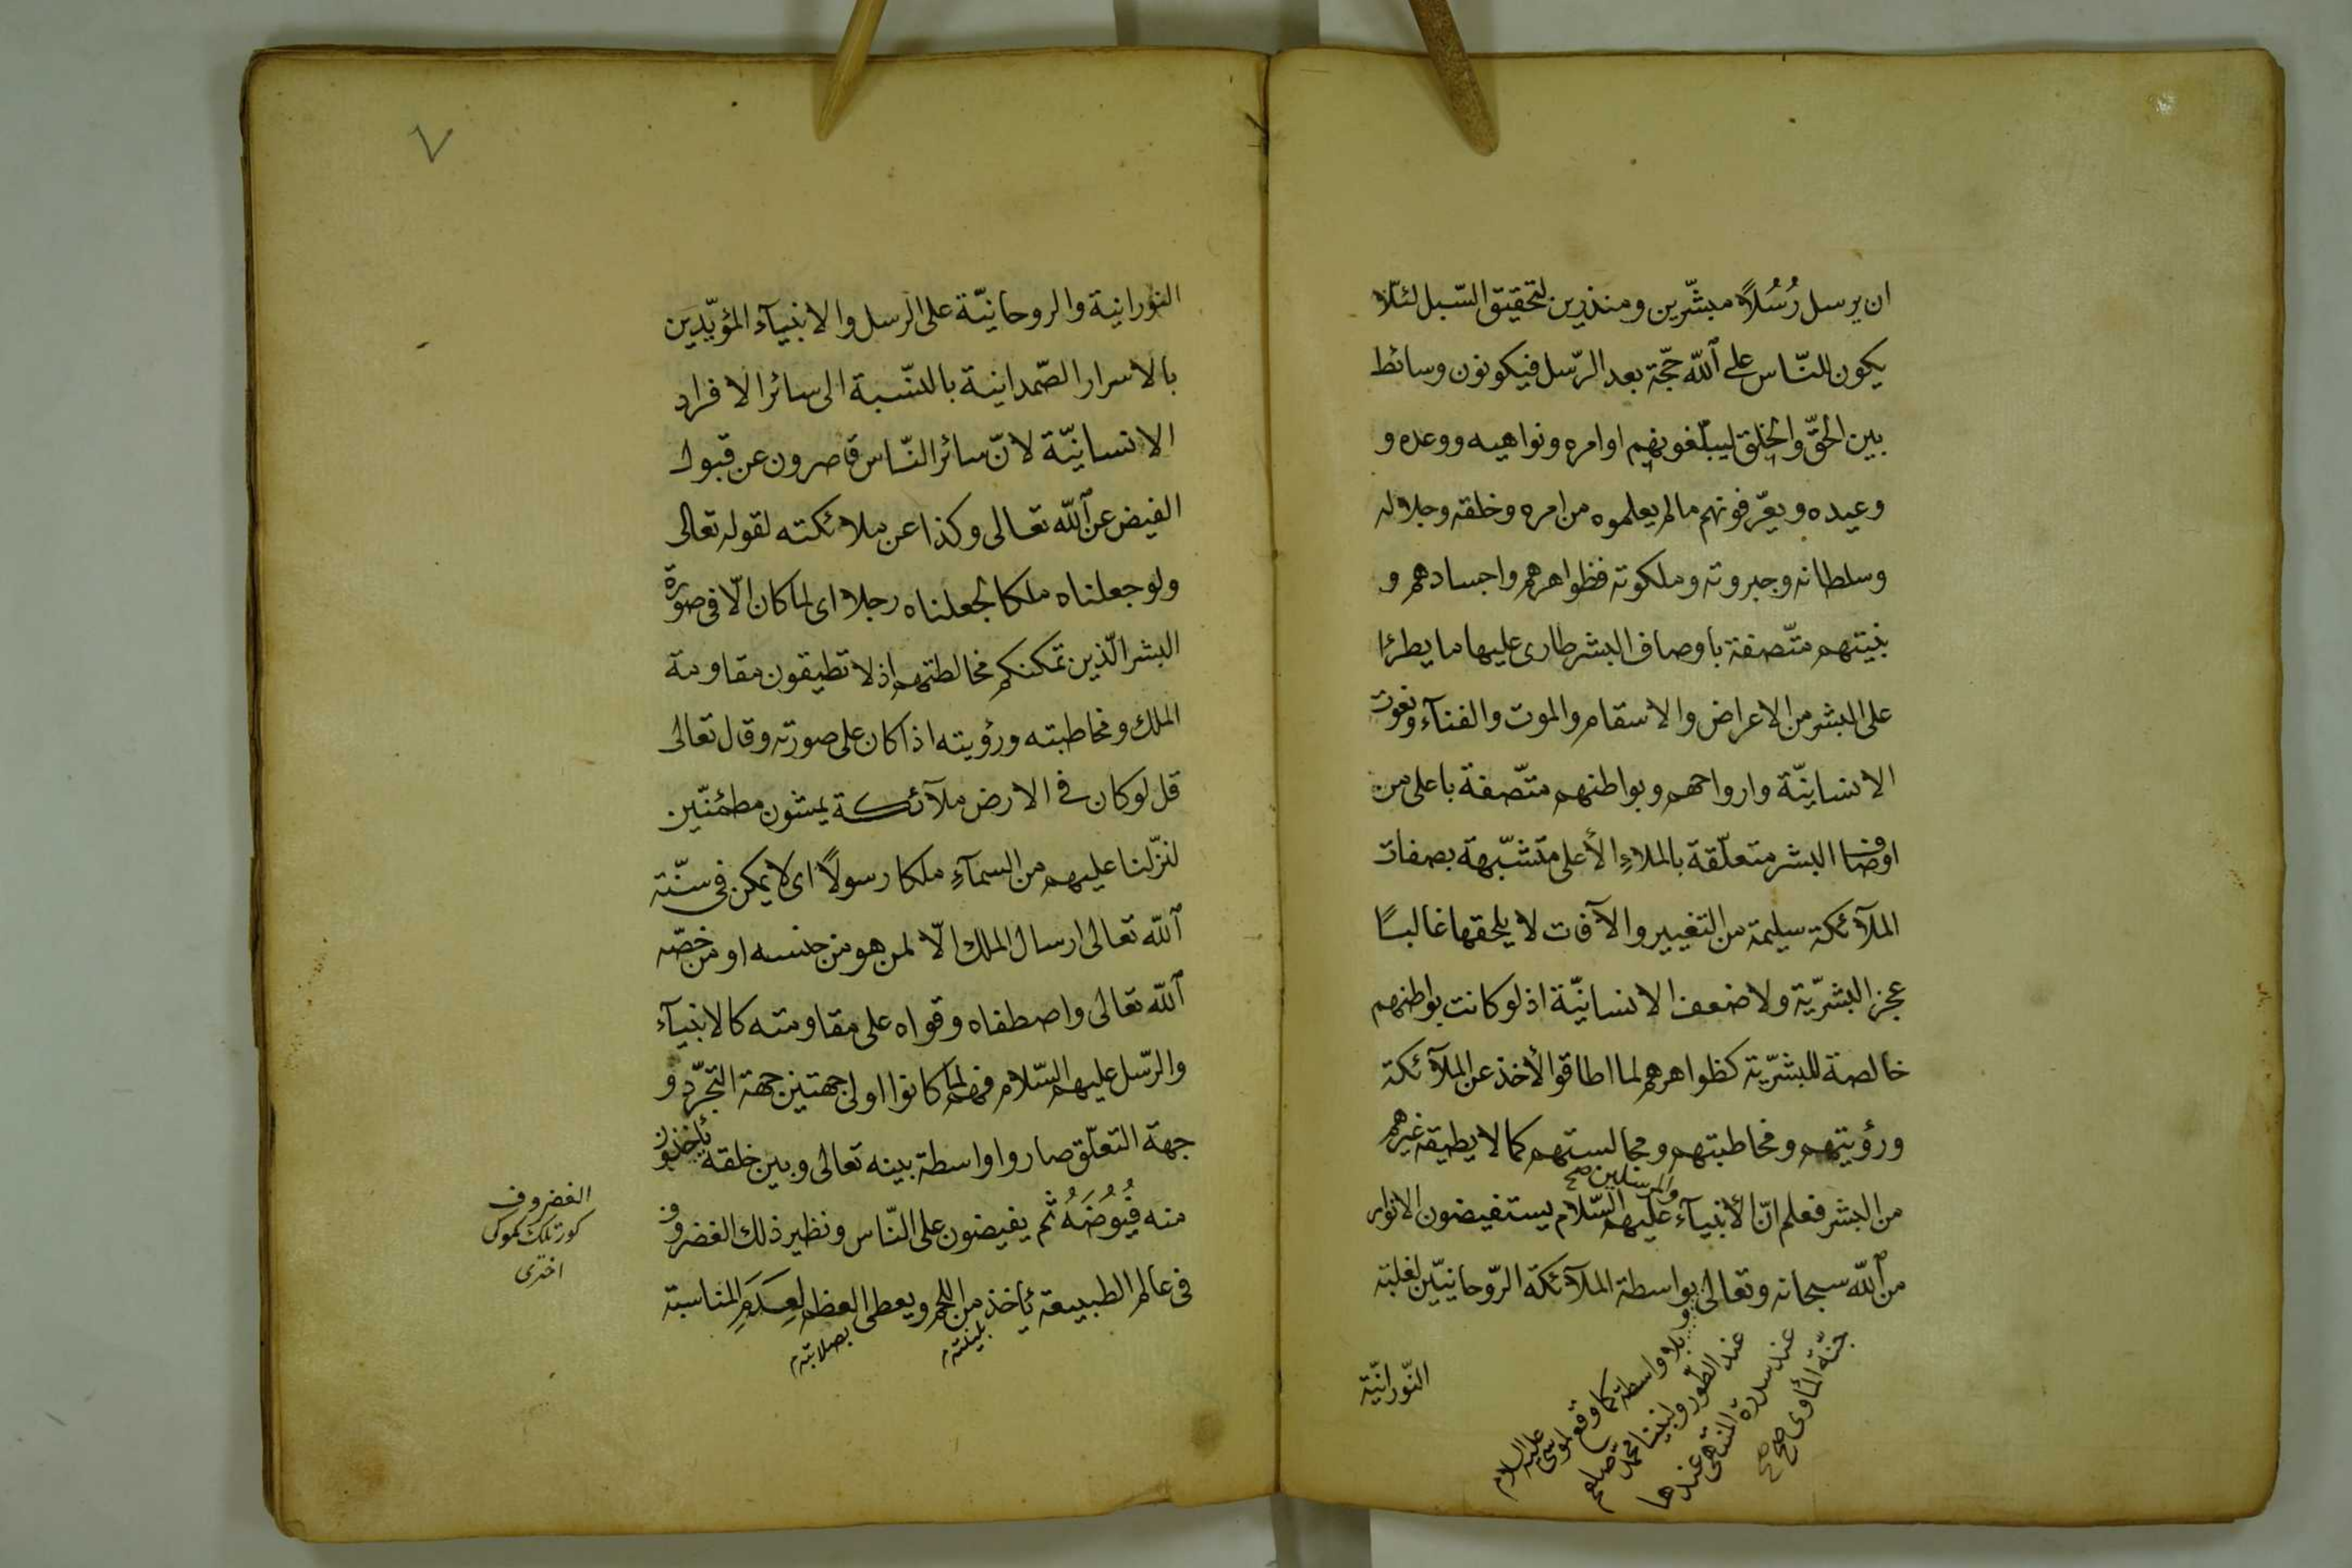 ان يرسل رُسُلاً مبشّرين ومنذرين لتحقيق السّبل لئلّا
يكون للنّاس على الله حجّة بعد الرّسل فيكونون وسائط
بين الحقّ والخلق ليبلّغونهم اوامره ونواهيه ووعده و
وعيده ويعرّفونهم مالم يعلموه من امره وخلقه وجلاله
وسلطانه وجبروته وملكوته فظواهرهم واجسادهم و
بنيتهم متّصفة باوصاف البشر طارى عليها ما يطرئا
على البشر من الاعراض والاسقام والموت والفنآء ونعوت
الانسانيّة وارواحهم وبواطنهم متّصفة باعلى من
اوصاف البشر متعلّقة بالملاءِ الأعلى متشبّهة بصفات
الملآئكة سليمة من التغيير والآفات لا يلحقها غالبًا
عجز البشريّة ولا ضعف الانسانيّة اذ لو كانت بواطنهم
خالصة للبشريّة كظواهرهم لما اطاقوا الأخذ عن الملآئكة
ورؤيتهم ومخاطبتهم ومجالستهم كما لا يطيقه غيرهم
والمرسلين صح
من البشر فعلم انّ الأنبيآء عليهم السّلام يستفيضون الانوار
من الله سبحانه وتعالى بواسطة الملآئكة الرّوحانيّين لغلبة
و بلا واسطة كما وقع لموسى عليه السلام
عند الطّور ولنبيّنا محمّد صلعم
عند سدرة المنتهى عندها
جنّة المأوى صح صح
النّورانيّة
٧
النورانية والروحانيّة على الرسل والانبيآء المؤيّدين
بالاسرار الصّمدانية بالنّسبة الى سائر الافراد
الانسانيّة لانّ سائر النّاس قاصرون عن قبول
الفيض عن الله تعالى وكذا عن ملائكته لقوله تعالى
ولو جعلناه ملكا لجعلناه رجلا اى لما كان الّا فى صورة
البشر الّذين تمكنكم مخالطتهم اذ لا تطيقون مقاومة
الملك ومخاطبته ورؤيته اذا كان على صورته وقال تعالى
قل لو كان فى الارض ملآئكة يمشون مطمئنّين
لنزّلنا عليهم من السمآءِ ملكا رسولاً اى لا يمكن فى سنّة
الله تعالى ارسال الملك الّا لمن هو من جنسه او من خصّه
الله تعالى واصطفاه وقواه على مقاومته كالانبيآء
والرّسل عليهم السّلام فهم لما كانوا اولى جهتين جهة التجرّد و
جهة التعلّق صاروا واسطة بينه تعالى وبين خلقه يأخذون
منه فُيُوضَهُ ثم يفيضون على النّاس ونظير ذلك الغضروف
فى عالم الطبيعة يأخذ من اللحم ويعطى العظم لِعَدَمِ المناسبة
بلينته م
بصلابته م
الغضروف
كورتلك كموك
اخترى